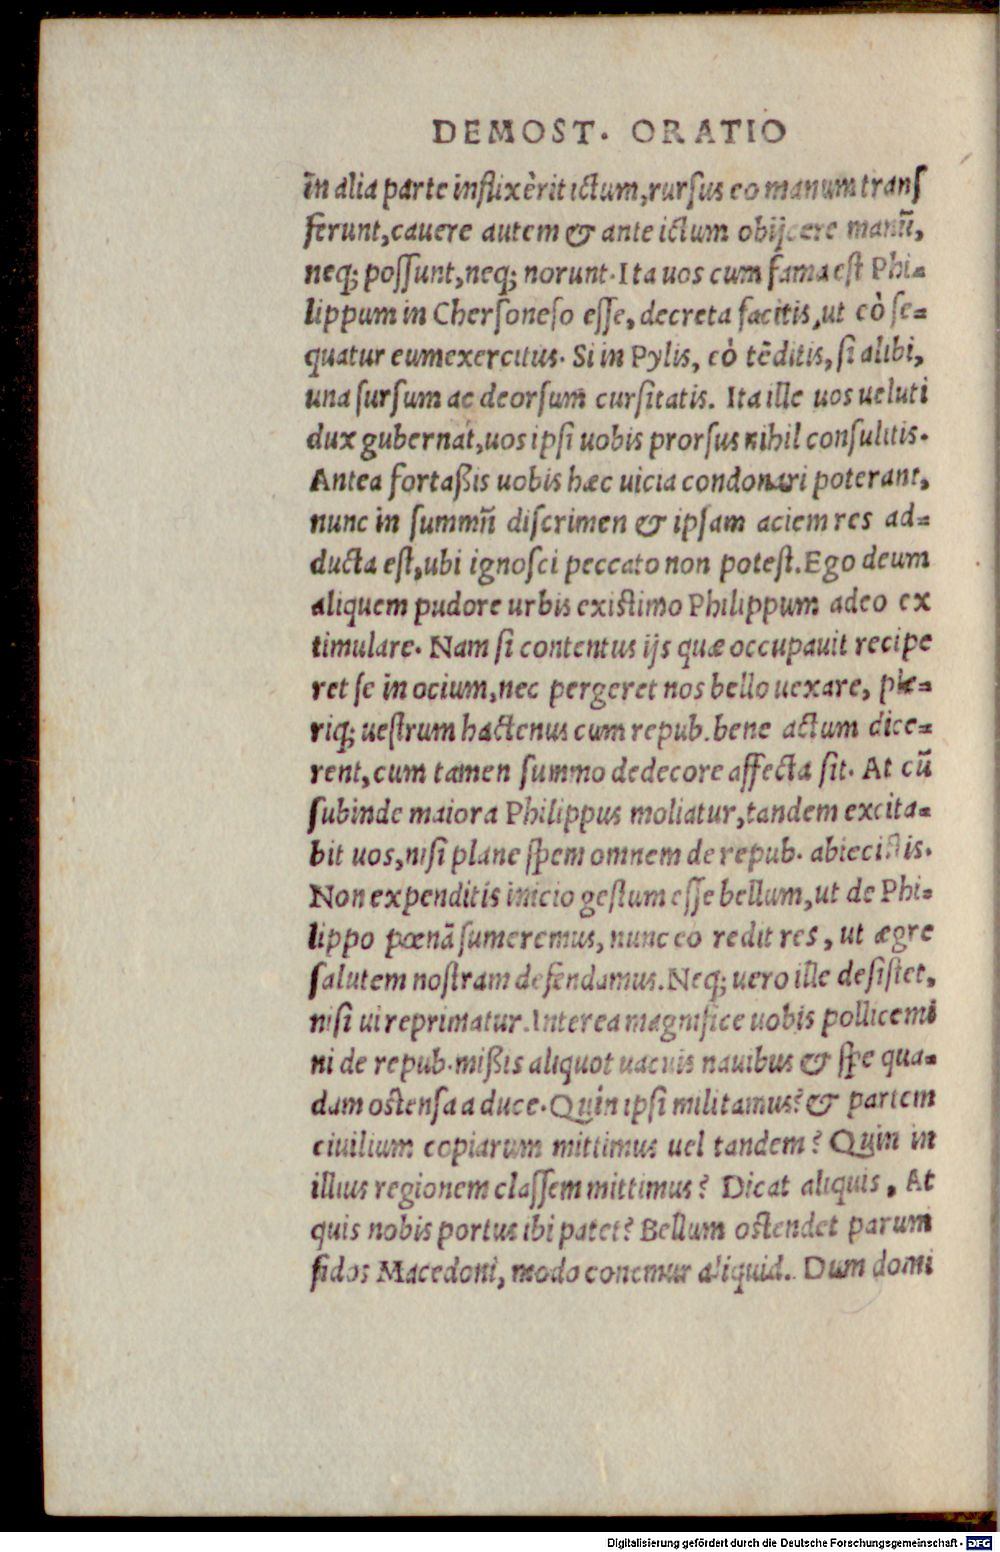 DEMOST. ORATIO
in alia parte inflixèrit ictum, rursus eo manum trans
ferunt, cauere autem & ante ictum obijcere manũ,
neq; possunt, neq; norunt. Ita uos cum fama est Phi-
lippum in Chersoneso esse, decreta facitis, ut eò se-
quatur eum exercitus. Si in Pylis, eò tẽditis, si alibi,
una sursum ac deorsum cursitatis. Ita ille uos ueluti
dux gubernat, uos ipsi uobis prorsus nihil consulitis.
Antea fortaßis uobis hæc uicia condonari poterant,
nunc in summũ discrimen & ipsam aciem res ad-
ducta est, ubi ignosci peccato non potest. Ego deum
aliquem pudore urbis existimo Philippum adeo ex
timulare. Nam si contentus ijs quæ occupauit recipe
ret se in ocium, nec pergeret nos bello uexare, ple-
riq; uestrum hactenus cum repub. bene actum dice-
rent, cum tamen summo dedecore affecta sit. At cũ
subinde maiora Philippus moliatur, tandem excita-
bit uos, nisi plane spem omnem de repub. abiecistis.
Non expenditis inicio gestum esse bellum, ut de Phi-
lippo pœnã sumeremus, nunc eo redit res, ut ægre
salutem nostram defendamus. Neq; uero ille desistet,
nisi ui reprimatur. Interea magnifice uobis pollicemi
ni de repub. mißis aliquot uacuis nauibus & spe qua-
dam ostensa a duce. Quin ipsi militamus? & partem
ciuilium copiarum mittimus uel tandem? Quin in
illius regionem classem mittimus? Dicat aliquis, At
quis nobis portus ibi patet? Bellum ostendet parum
fidos Macedoni, modo conemur aliquid. Dum domi
Digitalisierung gefördert durch die Deutsche Forschungsgemeinschaft - DFG